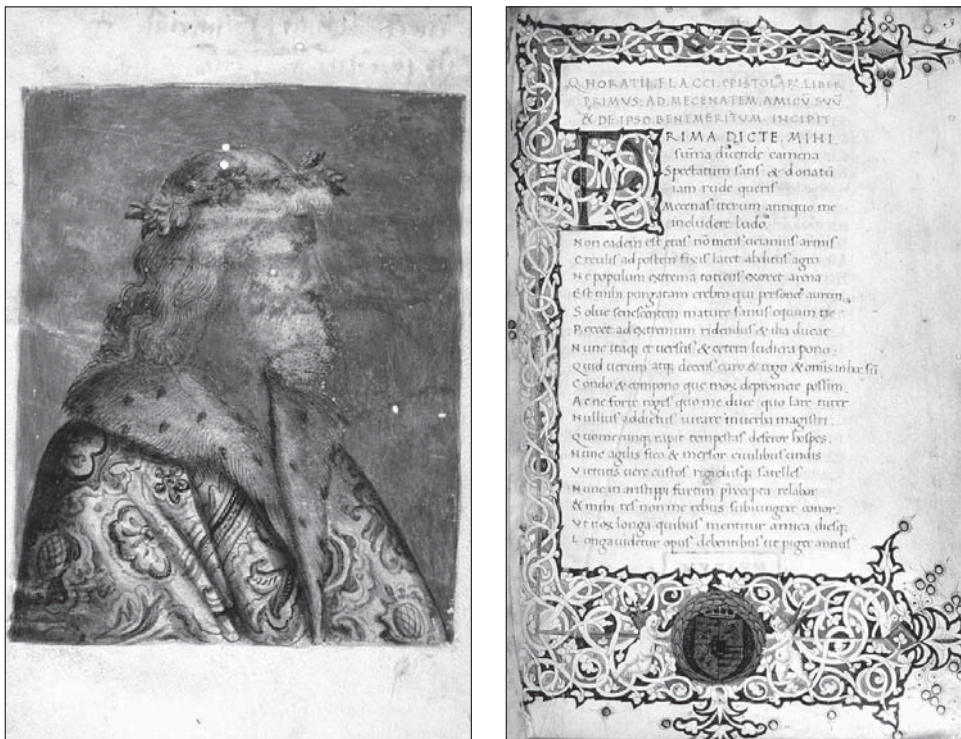 Q. HORATII. FLACCI. EPISTOLARꝜ. LIBER
PRIMVS. AD. MECENATEM. AMICŪ SVŪ
& DE. IPSO. BENEMERITUM. INCIPIT.
PRIMA DICTE. MIHI
sūma dicende camena
Spectatum satis & donatū
iam rude queris
Mecenas iterum antiquo me
includere ludo.
Non eadem est etas nō mens ueianius armis
Herculis ad postem fixis latet abditus agro
Ne populum extrema totiens exoret arena
Est mihi purgatam crebro qui personet aurem.
Solue senescentem mature sanus equum ne
Peccet ad extremum ridendus & ilia ducat
Nunc itaq et uersus & cetera ludicra pono
Quid uerum atq decens curo & rogo & omnis in hoc sū
Condo & compono que mox depromere possim.
Ac ne forte roges quo me duce quo lare tuter
Nullius addictus iurare in uerba magistri
Quo me cunq rapit tempestas deferor hospes.
Nunc agilis fio & mersor ciuilibus undis
Virtutis uere custos rigidusq satelles
Nunc in aristippi furtim p̄cepta relabor
& mihi res non me rebus subiungere conor.
Vt nox longa quibus mentitur amica diesq
Longa uidetur opus debentibus ut piger annus